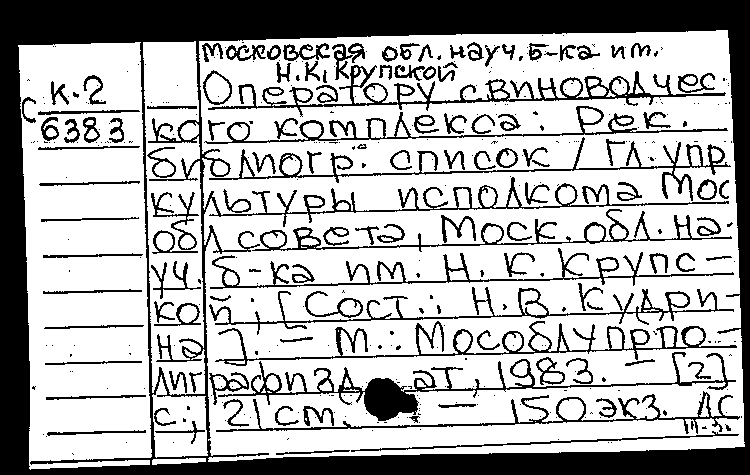 Московская обл. науч. б-ка им.
Н.К. Крупской
К.2
Оператору свиноводчес
С
6383
кого комплекса: Рек.
библиогр. список / Гл. упр
культуры исполкома Мос
облсовета, Моск. обл. на-
уч. б-ка им. Н. К. Крупс-
кой; [Сост.: Н. В. Кудри-
на]. — М.: Мособлупрпо-
лиграфиздат, 1983. — [2]
с.; 21 см. — 150 экз. ЛС